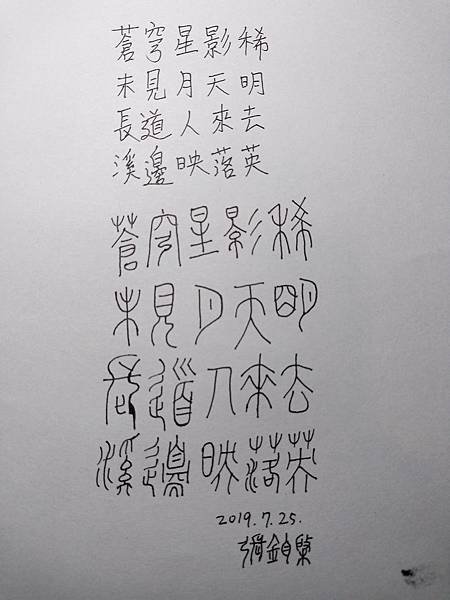 蒼穹星影稀
未見月天明
長道人來去
溪邊映落英
蒼穹星影稀
未見月天明
長道人來去
溪邊映落英
2019.7.25.